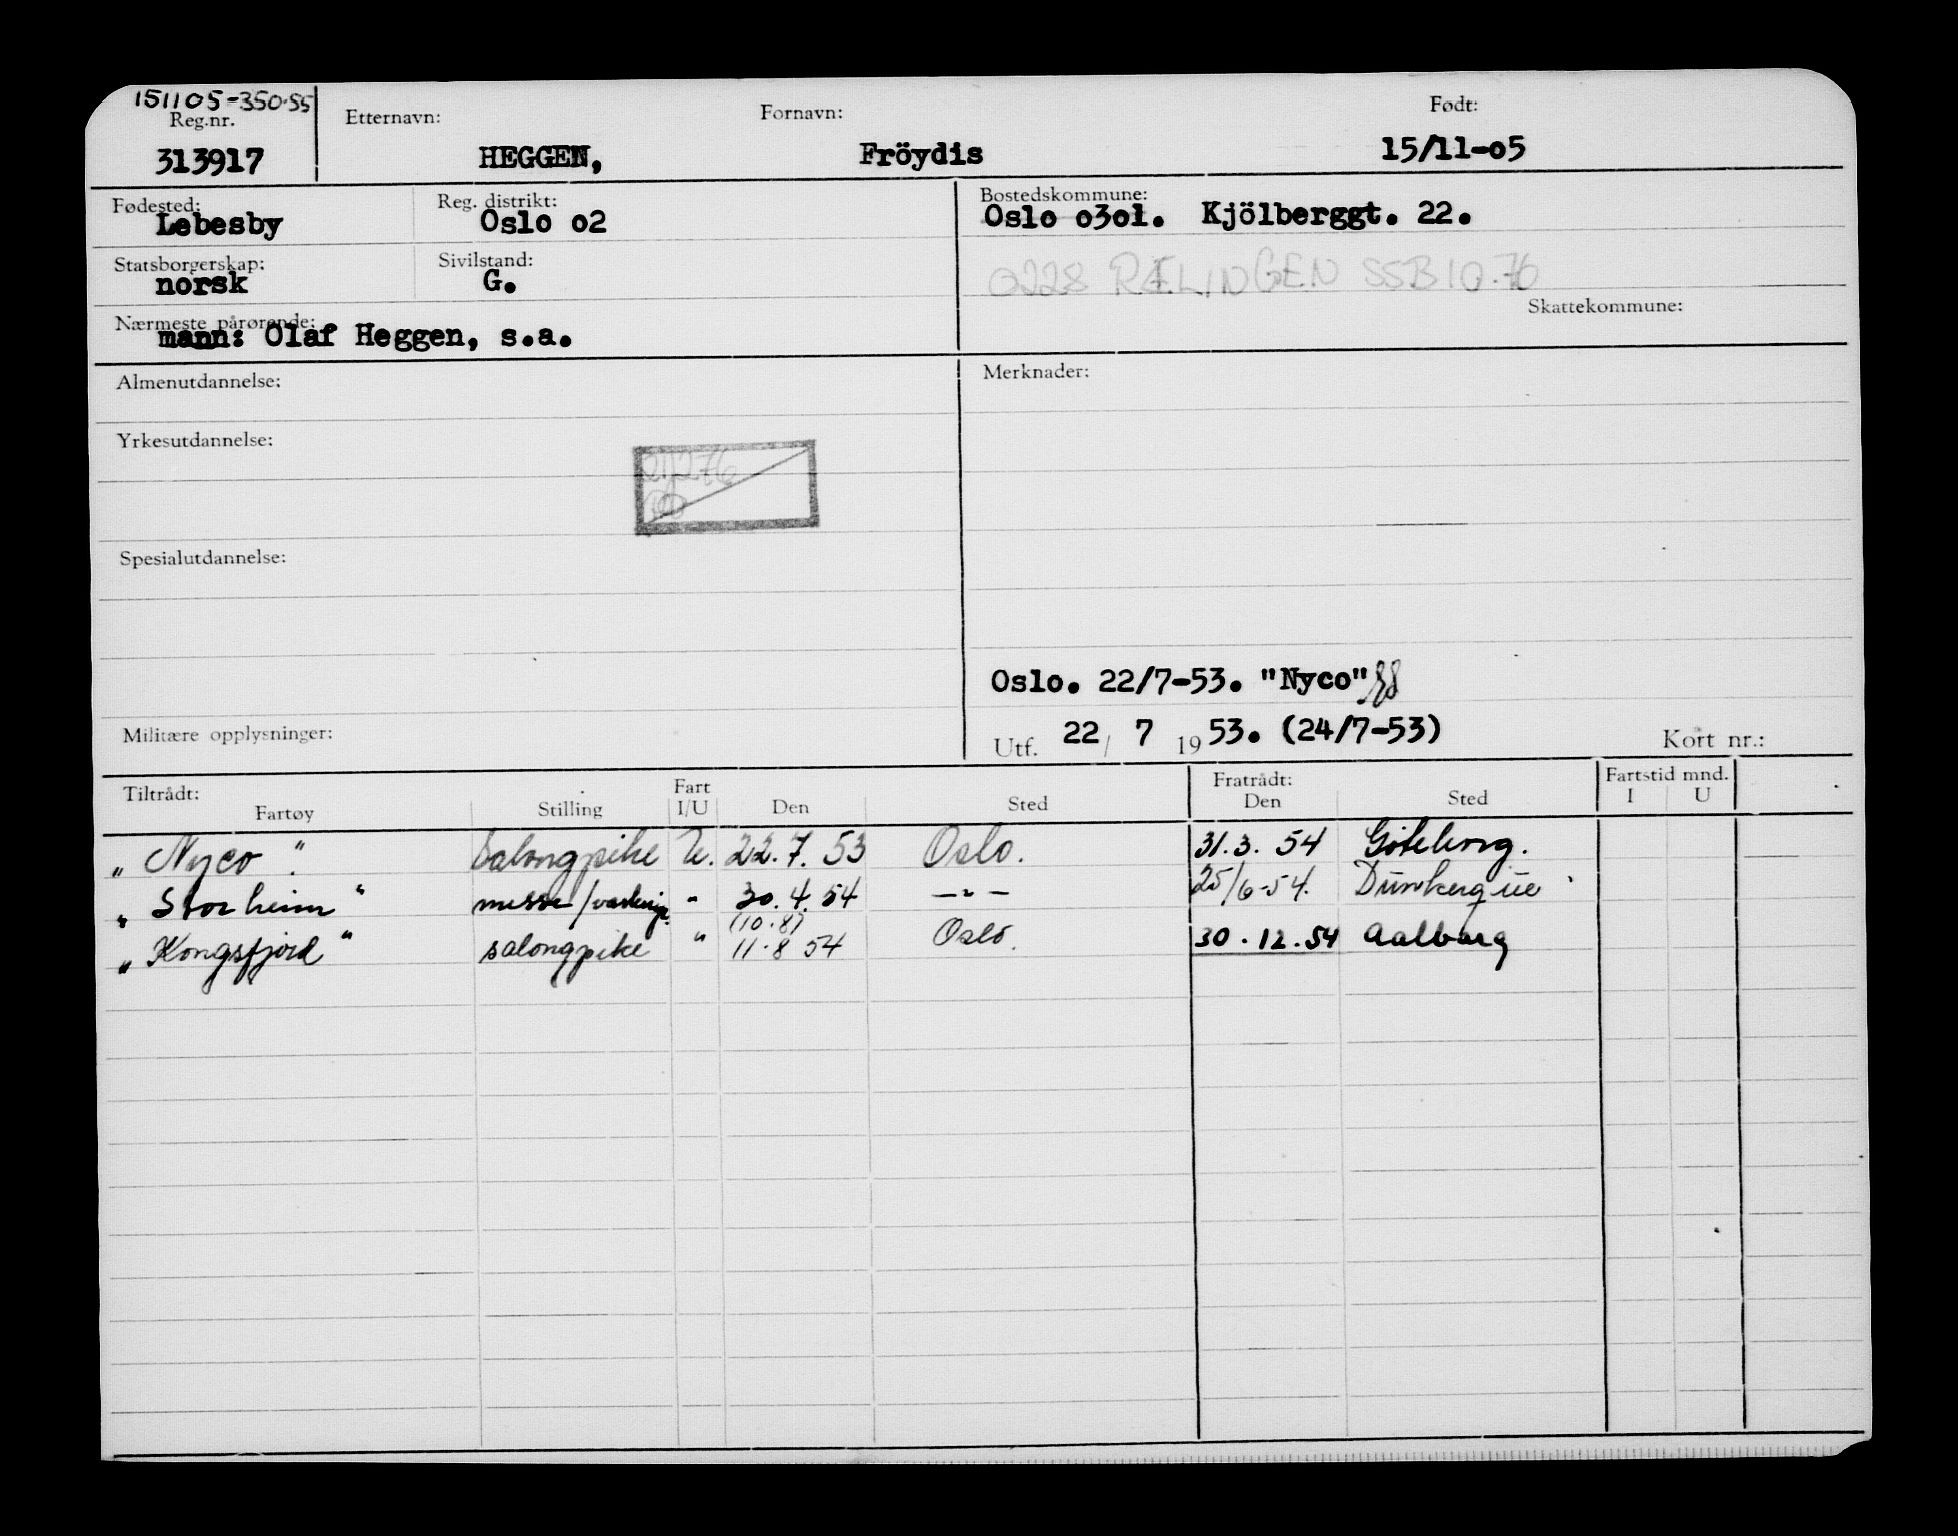 151105-350.55
Reg.nr. Etternavn: Fornavn: Født:
313917 HEGGEN, Fröydis 15/11-o5
Fødested: Reg. distrikt: Bostedskommune:
Lebesby Oslo o2 Oslo o3o1. Kjölberggt. 22.
Statsborgerskap: Sivilstand:
norsk G. 0228 RÆLINGEN SSB 10.76
Nærmeste pårørende: Skattekommune:
mann: Olaf Heggen, s.a.
Almenutdannelse: Merknader:
Yrkesutdannelse:
Spesialutdannelse:
Oslo. 22/7-53. "Nyco"
Militære opplysninger: Utf. 22/ 7 1953. (24/7-53) Kort nr.:
Tiltrådt: Fart Fratrådt: Fartstid mnd.
Fartøy Stilling I/U Den Sted Den Sted I U
„ Nyco " Salongpike U. 22.7.53 Oslo. 31.3.54 Göteborg.
„ Storheim " messe/ " 30.4.54 —"— 25/6-54. Dunkerque
(10.8)
„ Kongsfjord " salongpike " 11.8 54 Oslo. 30.12.54 Aalborg